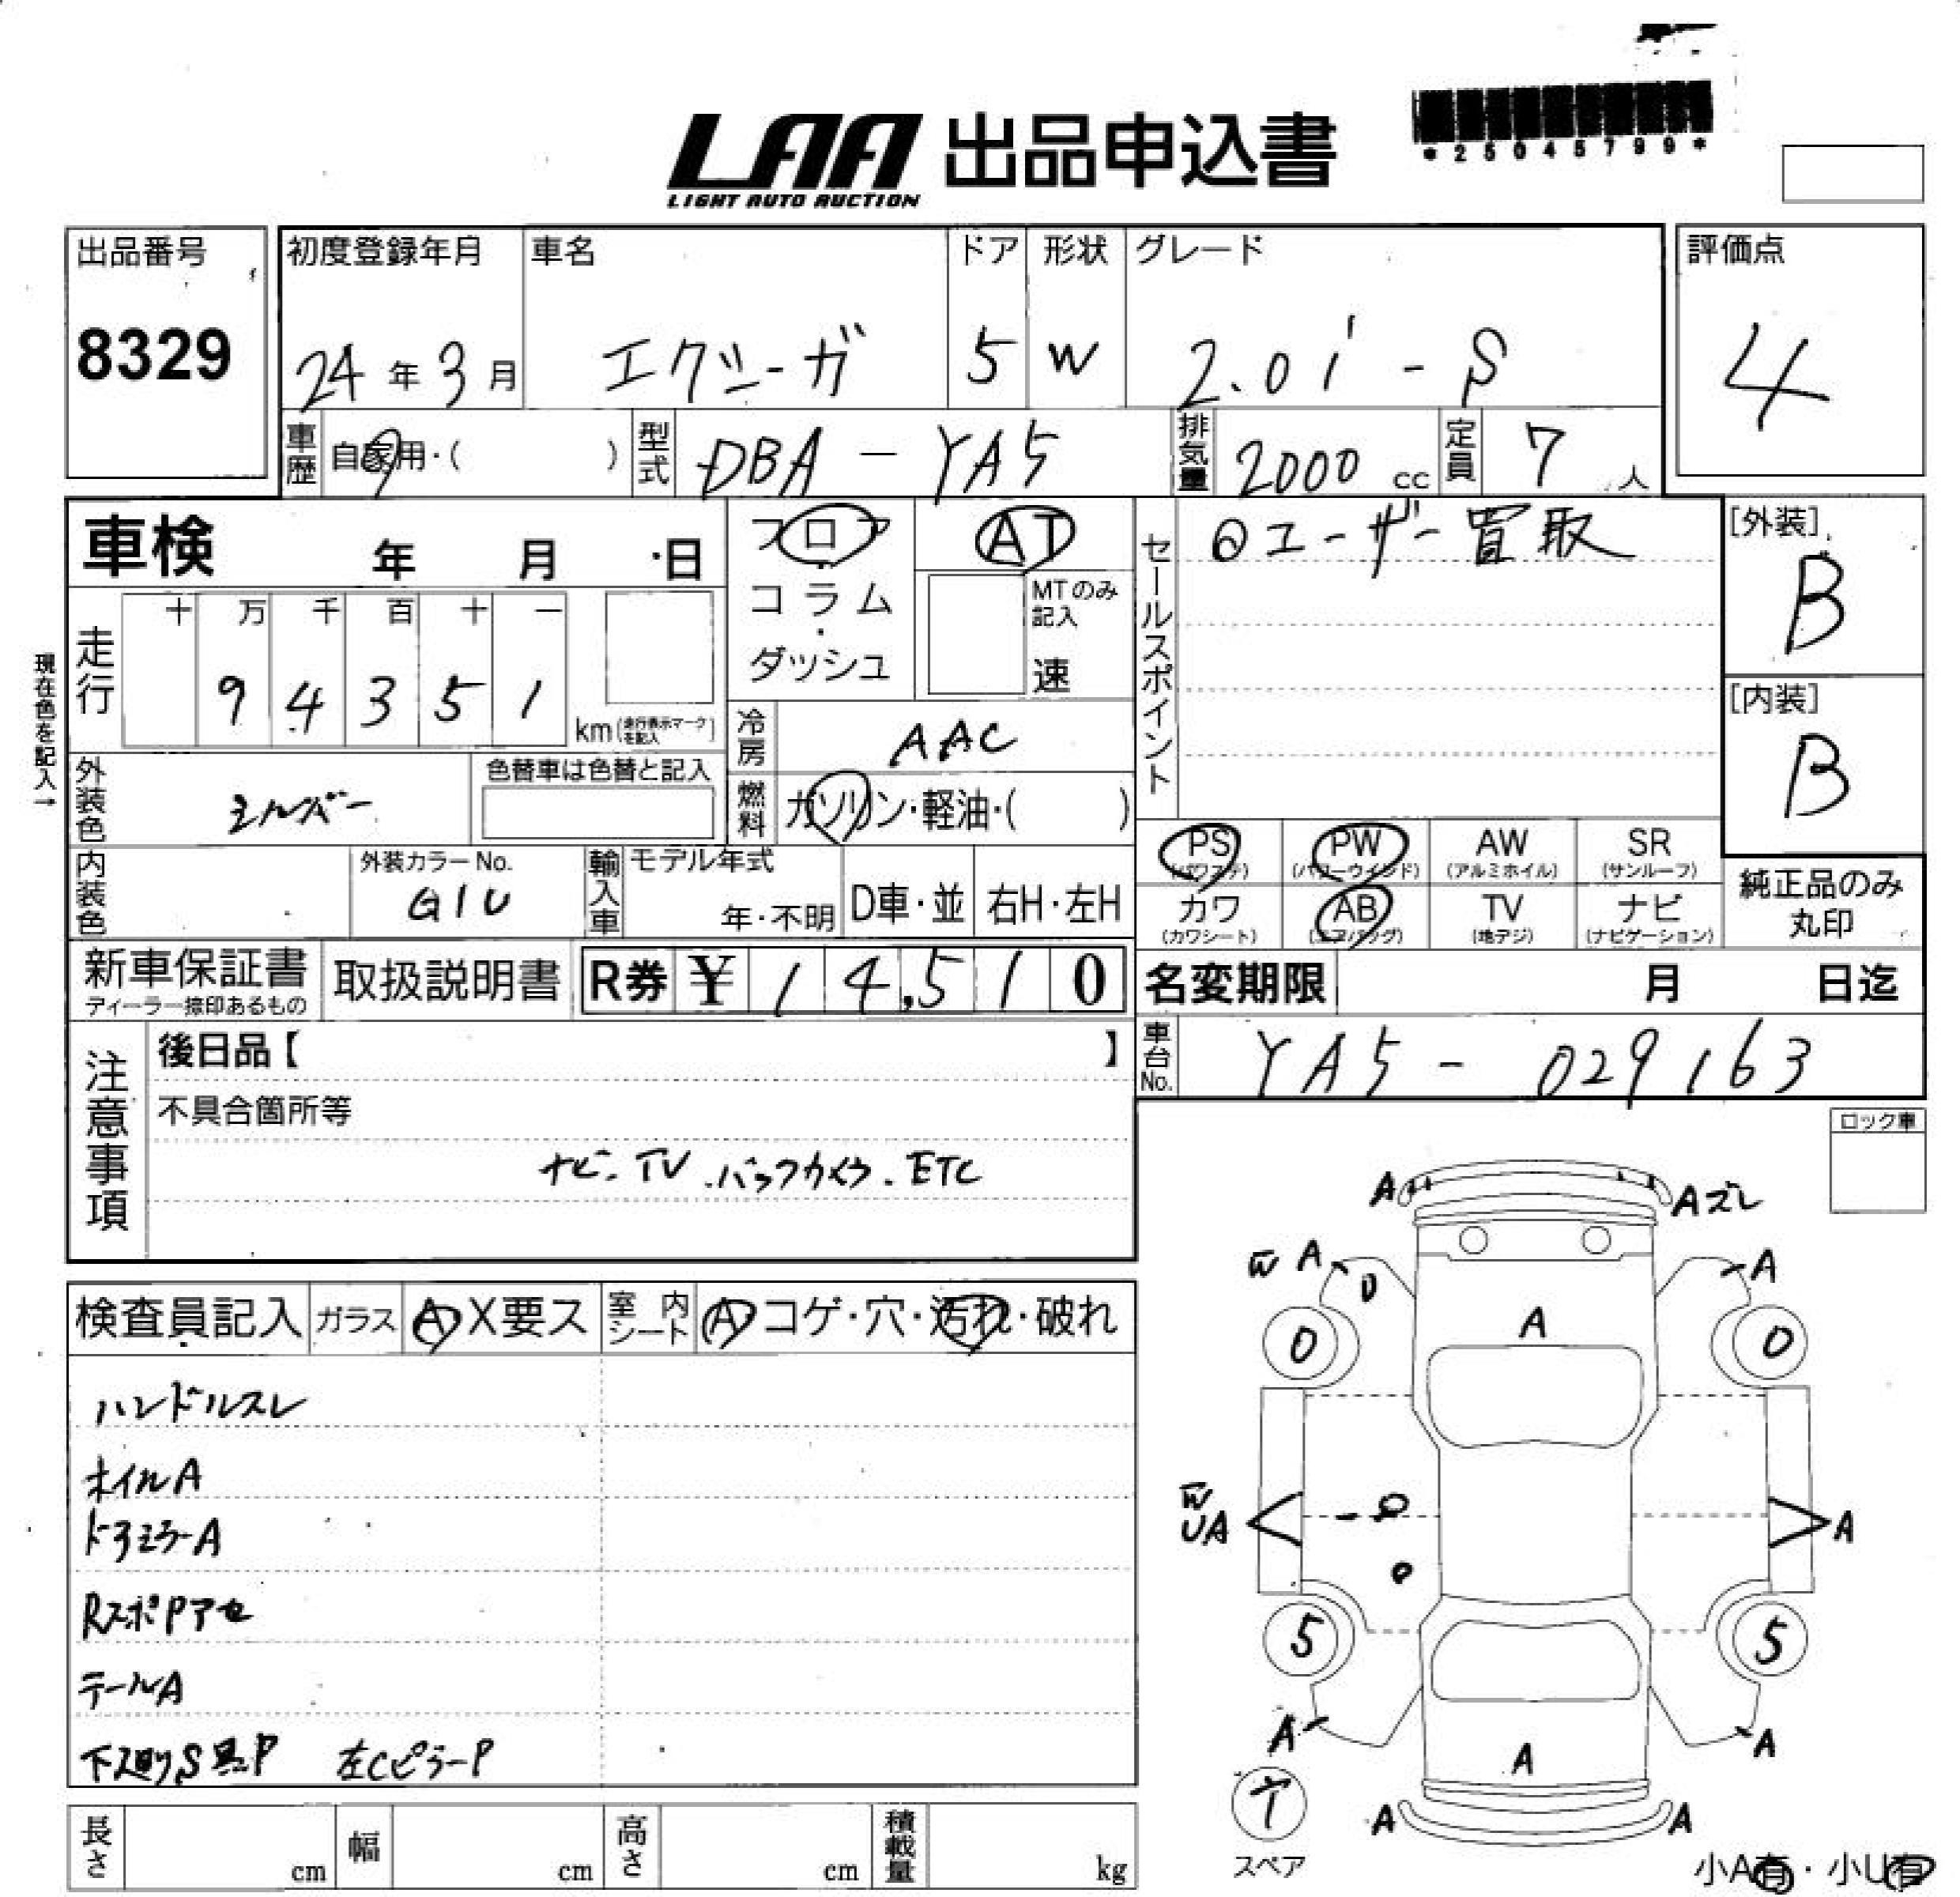 *25045799*
LAA 出品申込書
LIGHT AUTO AUCTION
出品番号 初度登録年月 車名 ドア 形状 グレード 評価点
8329 24年3月 エクシーガ 5 W 2.0i-S 4
車歴 自家用・( ) 型式 DBA-YA5 排気量 2000cc 定員 7人
車検 年 月 日 フロア・コラム・ダッシュ AT MTのみ記入 速
セールスポイント ◎ユーザー買取
[外装] B
[内装] B
現在色を記入→
走行 十 万 千 百 十 一
94351 km(走行表示マークを記入)
冷房 AAC
外装色 シルバー 色替車は色替と記入
燃料 ガソリン・軽油・( )
PS (パワステ) PW (パワーウインド) AW (アルミホイル) SR (サンルーフ)
カワ (カワシート) AB (エアバッグ) TV (地デジ) ナビ (ナビゲーション)
純正品のみ丸印
内装色 外装カラーNo. G1U 輸入車 モデル年式 年・不明 D車・並 右H・左H
新車保証書 ディーラー捺印あるもの 取扱説明書 R券 ¥ 14,510
名変期限 月 日迄
車台No. YA5-029163
注意事項 後日品【 】
不具合箇所等
ナビ.TV.バックカメラ.ETC
ロック車
検査員記入 ガラス A X要ス 室内シート A コゲ・穴・汚れ・破れ
ハンドルスレ
ホイルA
ドアミラーA
RスポPアセ
テールA
下廻りS黒P 左CピラーP
A Aズレ
W A A
A
0 0
W
UA A
5 5
A A
A
A A
T
スペア
小A有・小U有
長さ cm 幅 cm 高さ cm 積載量 kg